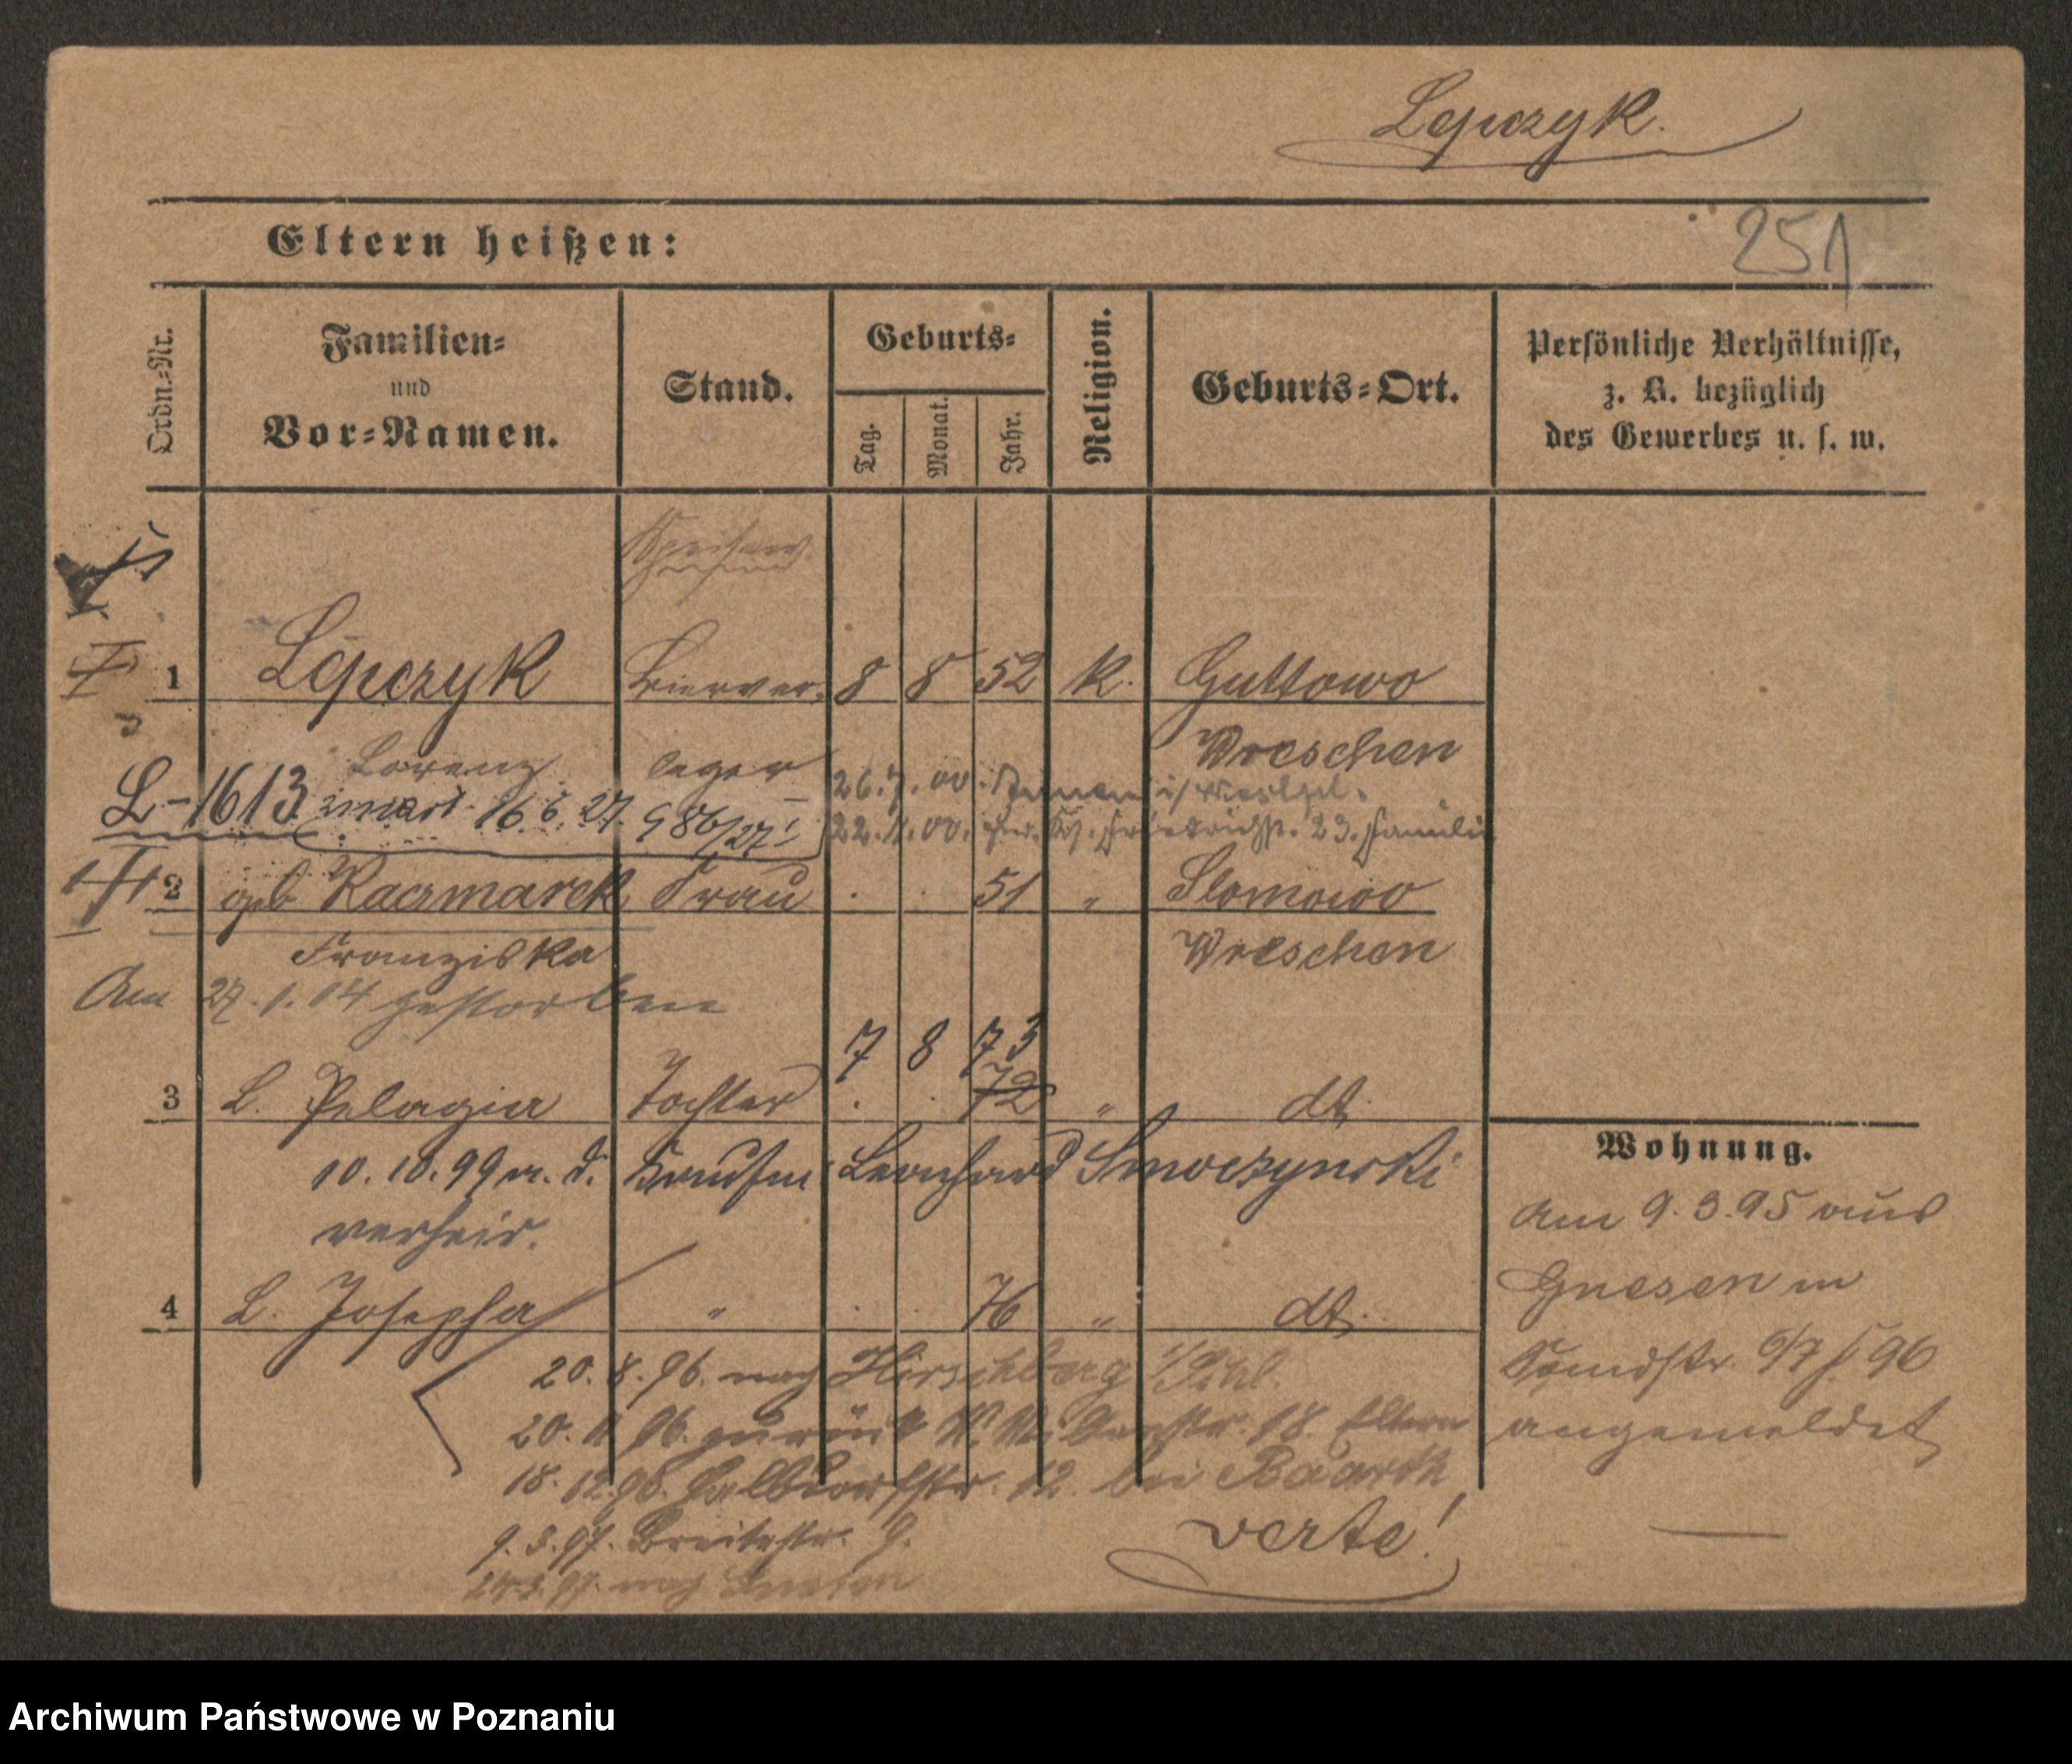 Lepczyk.
251
Eltern heißen:
Ordn.-Nr.
Familien- und Vor-Namen.
Stand.
Geburts-
Tag.
Monat.
Jahr.
Religion.
Geburts-Ort.
Persönliche Verhältnisse, z. B. bezüglich des Gewerbes u. s. w.
1 Lepczyk Bierver- 8 8 52 k. Guttowo
Lorenz leger Wreschen
L-1613 zmarł 16.6.27. 986/27
26.7.00.
22.11.00. 23. Familie
2 geb Kacmarek Frau . . 51 " Slomowo
Franziska Wreschen
Am 27.1.04 gestorben
7 8 73
3 L. Pelagia Tochter . . 72 " dt.
10.10.99 m. d. Kaufm. Leonhard Smoczynski
verheir.
4 L. Josepha " . . 76 " dt.
20.8.96. nach Hirschberg i/Schl.
20.11.96. zurück 18. Eltern
18.12.96. Halbdorfstr. 12. bei Baarth
9.3.97. Breitestr. 9.
24.3.97. nach Gnesen
verte!
Wohnung.
Am 9.3.95 aus
Gnesen in
Sandstr. 96
angemeldet
Archiwum Państwowe w Poznaniu